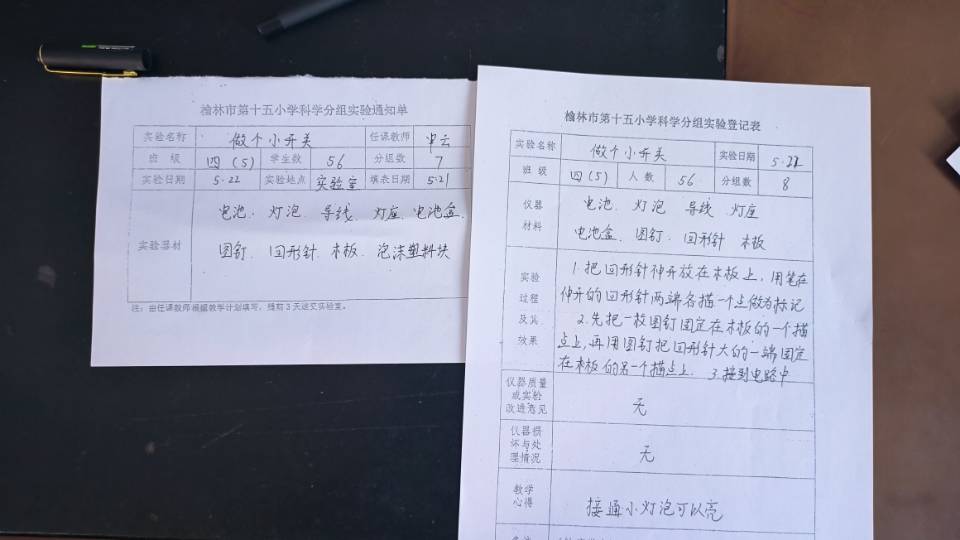 榆林市第十五小学科学分组实验通知单
实验名称 做个小开关 任课教师 申云
班 级 四(5) 学生数 56 分组数 7
实验日期 5·22 实验地点 实验室 填表日期 5·21
电池、灯泡、导线、灯座、电池盒、
实验器材
图钉、回形针、木板、泡沫塑料块
注：由任课教师根据教学计划填写，提前3天送交实验室。
榆林市第十五小学科学分组实验登记表
实验名称 做个小开关 实验日期 5·22
班 级 四(5) 人 数 56 分组数 8
仪器 电池、灯泡 导线、灯座
材料 电池盒、图钉、回形针 木板
实验 1.把回形针伸开放在木板上，用笔在
过程 伸开的回形针两端各描一个点做为标记
及其 2.先把一枚图钉固定在木板的一个描
效果 点上，再用图钉把回形针大的一端固定
在木板的另一个描点上. 3.接到电路中
仪器质量
或实验
改进意见
无
仪器损
坏与处
理情况
无
教学
心得
接通小灯泡可以亮